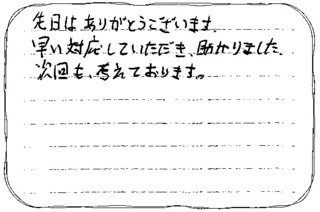 先日はありがとうございます.
早い対応していただき、助かりました、
次回も、考えております。